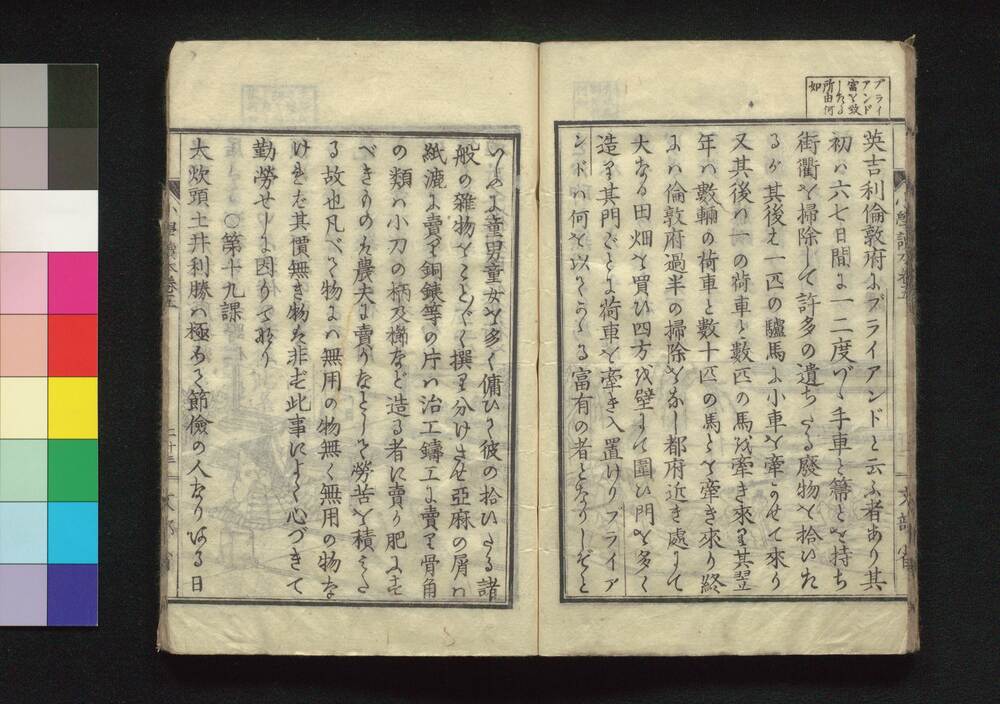 ブライ
アンド
富を致
したる
所由何
如
英吉利倫敦府にブライアンドと云ふ者あり其
初ハ六七日間に一二度づゝ手車と箒とを持ち
街衢を掃除して許多の遺ちたる廢物を拾いた
るが其後ハ一匹の驢馬に小車を牽かせて來り
又其後ハ一の荷車と數匹の馬を牽き來り其翌
年ハ數輛の荷車と數十匹の馬とを牽き來り終
にハ倫敦府過半の掃除をなし都府近き處にて
大なる田畑を買ひ四方を壁にて圍ひ門を多く
造り其門ごとに荷車を牽き入置けりブライア
ンドハ何を以てかゝる富有の者となりしぞと
いふに童男童女を多く傭ひて彼の拾ひたる諸
般の雜物をこと〴〵く撰り分けさせ亞麻の屑ハ
紙漉に賣り銅鐵等の片ハ冶工鑄工に賣り骨角
の類ハ小刀の柄及櫛など造る者に賣り肥にす
べきものハ農夫に賣るなどして勞苦を積みた
る故也凡べて物にハ無用の物無く無用の物な
ければ其價無き物ハ非ず此事によく心づきて
勤勞せしに因りてなり
〇第十九課
大炊頭土井利勝ハ極めて節儉の人なりある日
小學讀本卷五
二十三
文部省